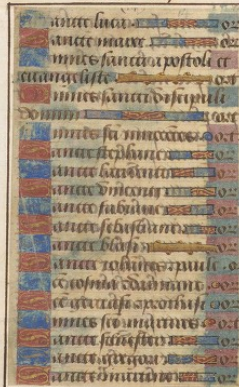 Sancte luca or
Sancte marce or
Omnes sancti apostoli et
euangeliste orate
Omnes sancti discipuli
domini orate
Omnes sci innocētes orat
Sancte stephane or
Sancte laurenti or
Sancte vincenti or
Sancte fabiane or
Sancte sebastiane or
Sancte blasi or
Sancte iohannes & paule or
cosma & damiane or
prothasi or
Omnes sci martires or
Sancte siluester or
Sancte gregori or
Sancte martine or